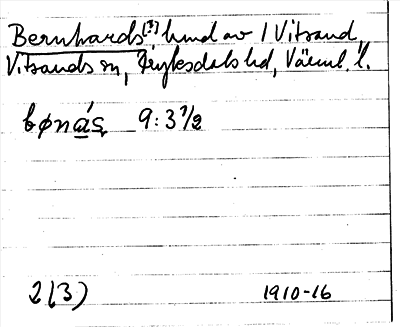 Bernhards[?] hmd av 1 Vitsand,
Vitsands sn, Fryksdals hd, Värml. l.
bønás 9:3 1/2
2(3) 1910-16